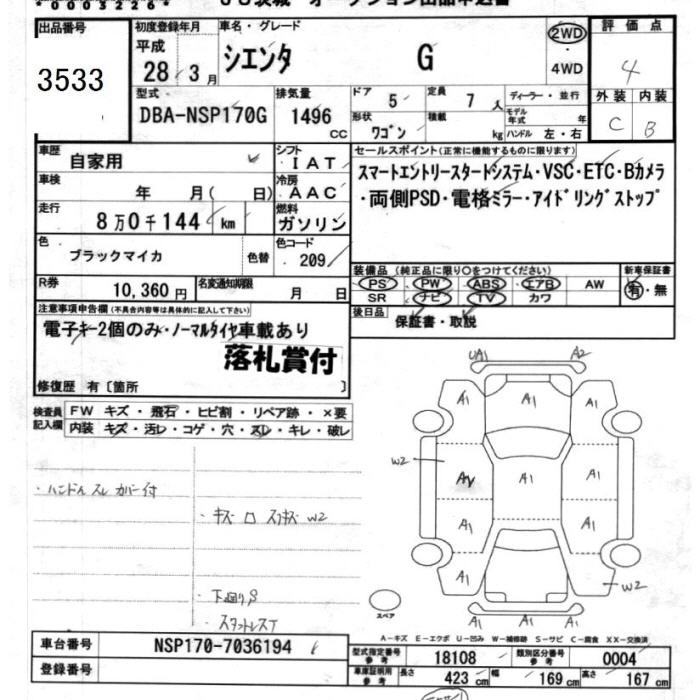 * 00032264 *
出品番号
3533
初度登録年月
平成
28 3月
車名・グレード
シエンタ G
2WD
4WD
評価点
4
外装 内装
C B
型式
DBA-NSP170G
排気量
1496 CC
ドア
5
定員
7人
形状
ワゴン
積載
kg
ディーラー・並行
モデル年式 年
ハンドル 左・右
車歴
自家用
シフト
IAT
車検
年 月( 日)
冷房
AAC
走行
8万0千144 km
燃料
ガソリン
色
ブラックマイカ
色替
色コード
209
R券
10,360円
名変通知期限
月 日
セールスポイント(正常に機能するものに限ります)
スマートエントリースタートシステム・VSC・ETC・Bカメラ
・両側PSD・電格ミラー・アイドリングストップ
装備品 (純正品に限り○をつけてください)
PS PW ABS エアB AW
SR ナビ TV カワ
新車保証書
有・無
後日品
保証書・取説
注意事項申告欄(不具合内容等は具体的に記入して下さい)
電子キー2個のみ・ノーマルタイヤ車載あり
落札賞付
修復歴 有〔箇所 〕
検査員記入欄
FW キズ・飛石・ヒビ割・リペア跡・×要
内装 キズ・汚レ・コゲ・穴・スレ・キレ・破レ
・ハンドルスレ カバー付
・キズ ロ スリキズ W2
・下回りS
・スタッドレスT
UA1 A2
A1 A1 A1
W2
A1 A1
A1 A1
A1
W2
A1 A1
スペア
A-キズ E-エクボ U-凹み W-補修跡 S-サビ C-腐食 XX-交換済
車台番号
NSP170-7036194
登録番号
型式指定番号 参考
18108
類別区分番号 参考
0004
車庫証明用 参考
長さ 423 cm 幅 169 cm 高さ 167 cm